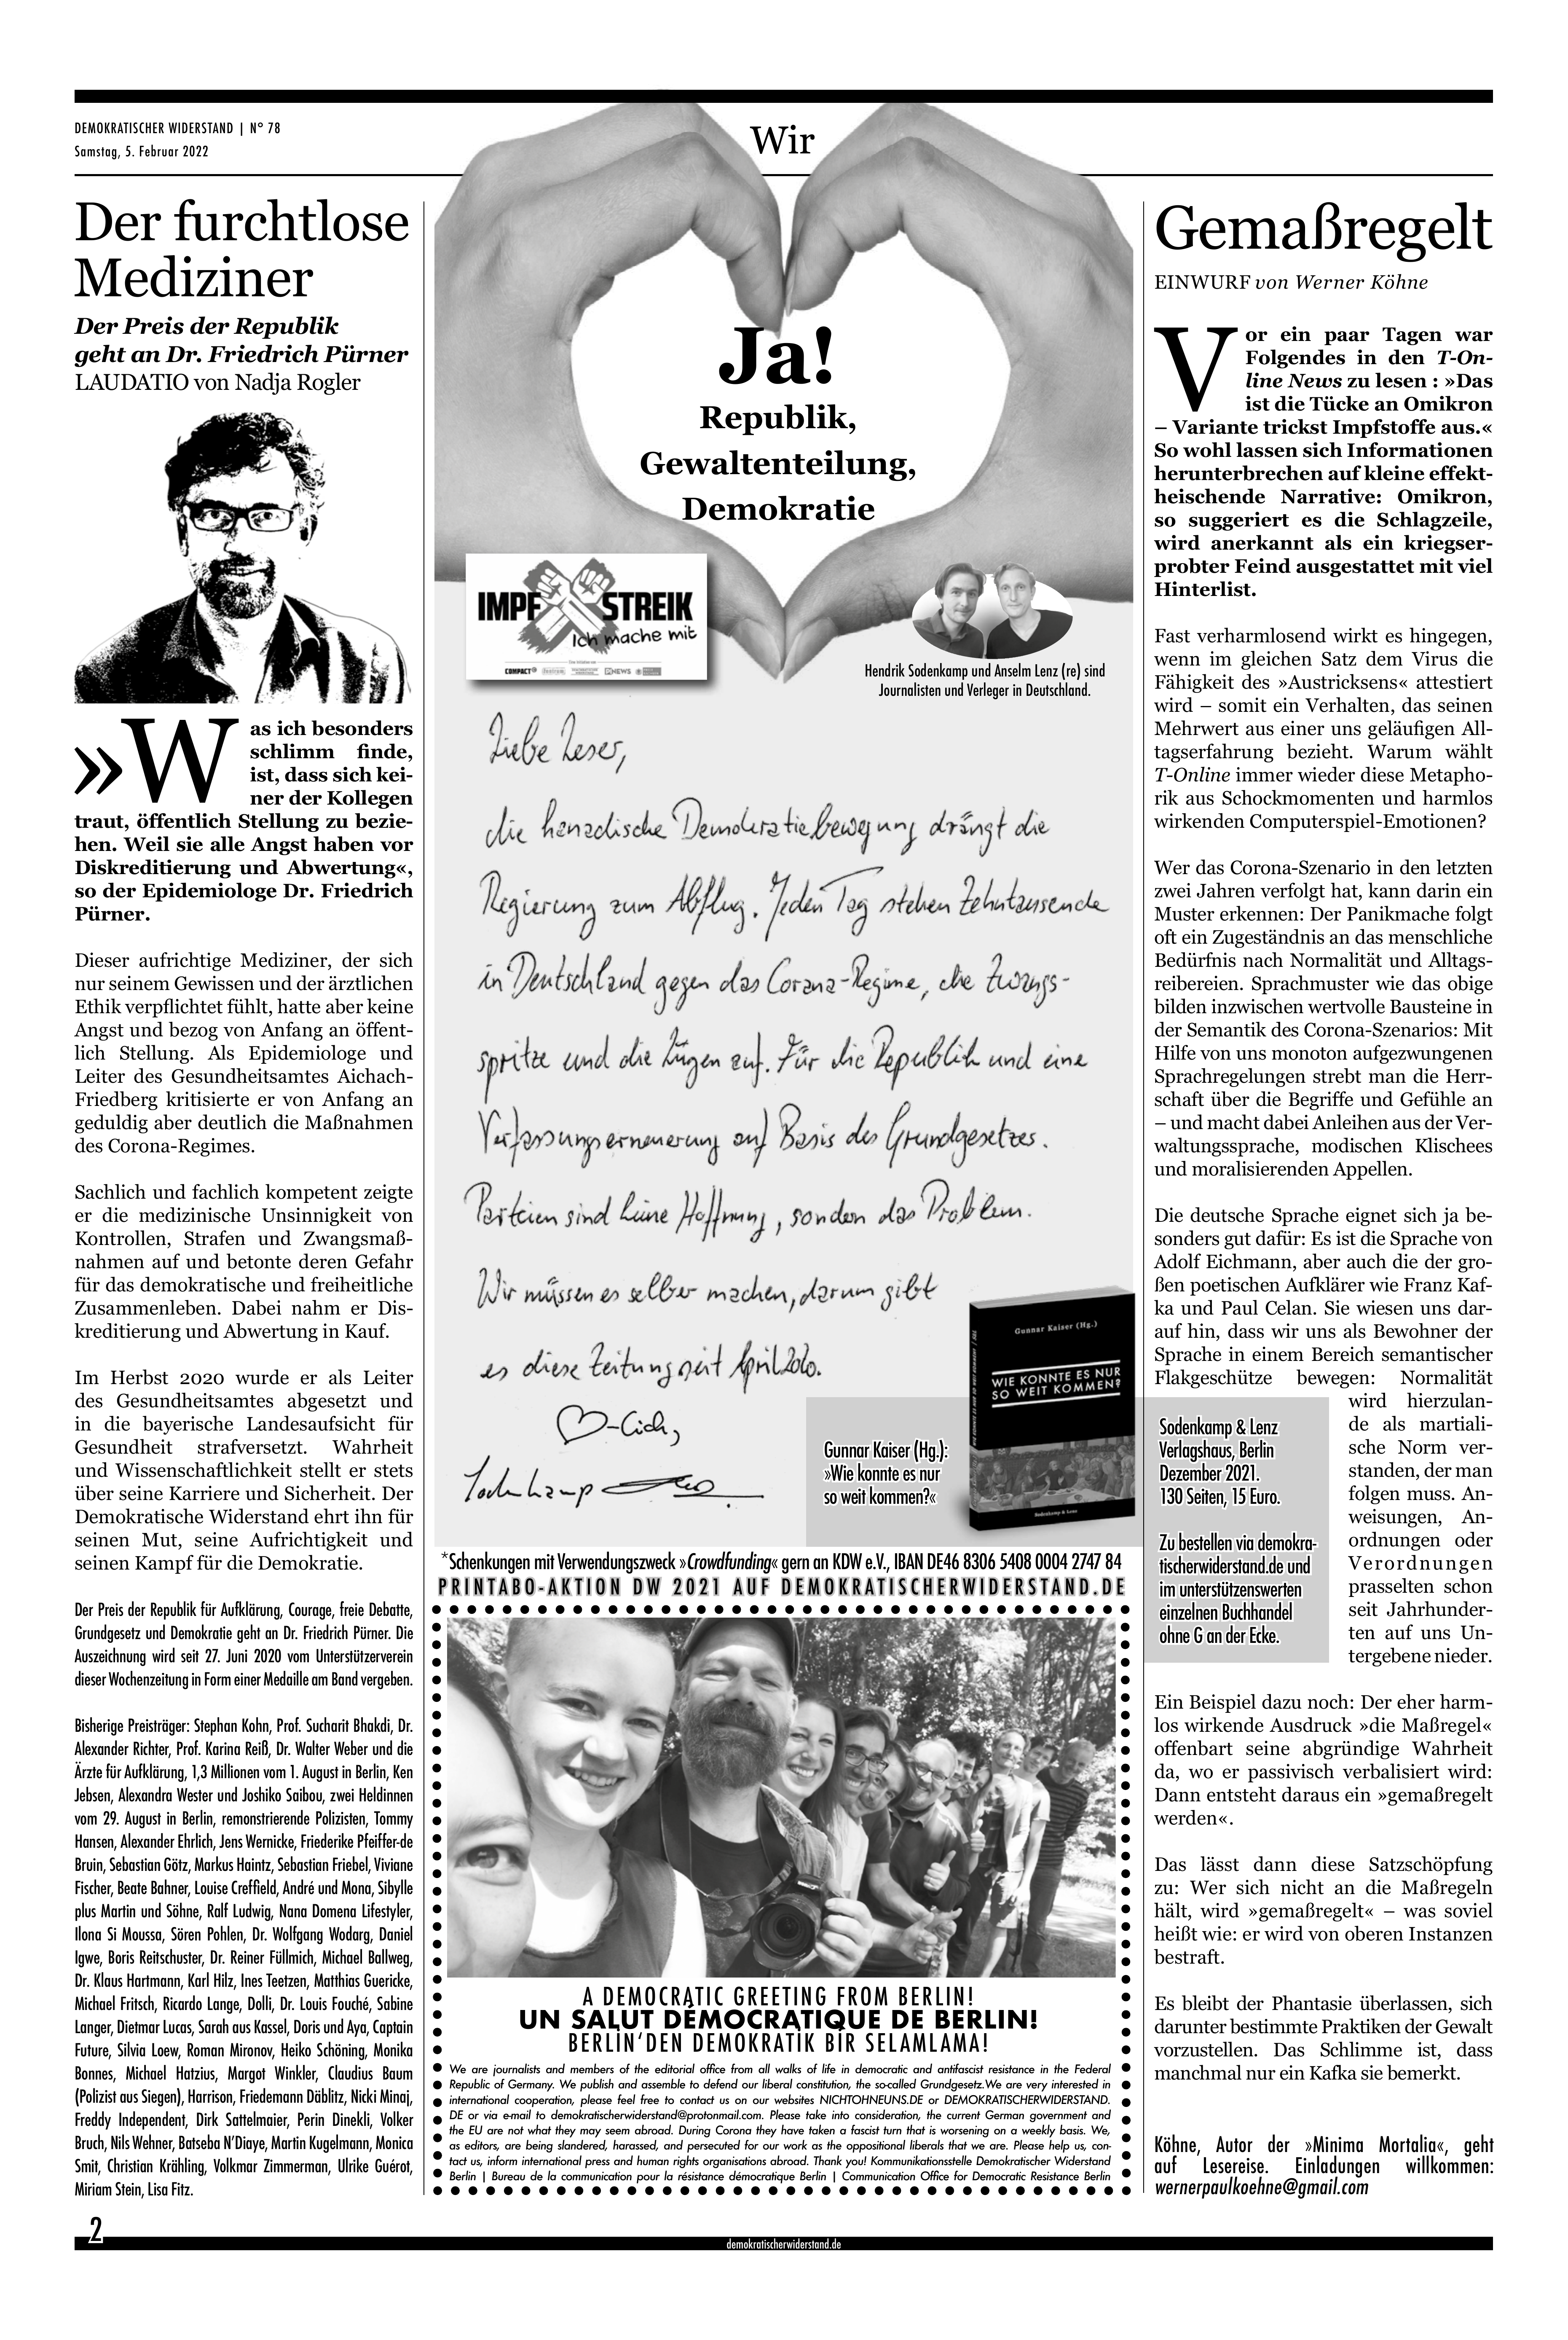 DEMOKRATISCHER WIDERSTAND | N° 78
Samstag, 5. Februar 2022
Wir
Der furchtlose
Mediziner
Der Preis der Republik
geht an Dr. Friedrich Pürner
LAUDATIO von Nadja Rogler
»Was ich besonders
schlimm finde,
ist, dass sich kei-
ner der Kollegen
traut, öffentlich Stellung zu bezie-
hen. Weil sie alle Angst haben vor
Diskreditierung und Abwertung«,
so der Epidemiologe Dr. Friedrich
Pürner.
Dieser aufrichtige Mediziner, der sich
nur seinem Gewissen und der ärztlichen
Ethik verpflichtet fühlt, hatte aber keine
Angst und bezog von Anfang an öffent-
lich Stellung. Als Epidemiologe und
Leiter des Gesundheitsamtes Aichach-
Friedberg kritisierte er von Anfang an
geduldig aber deutlich die Maßnahmen
des Corona-Regimes.
Sachlich und fachlich kompetent zeigte
er die medizinische Unsinnigkeit von
Kontrollen, Strafen und Zwangsmaß-
nahmen auf und betonte deren Gefahr
für das demokratische und freiheitliche
Zusammenleben. Dabei nahm er Dis-
kreditierung und Abwertung in Kauf.
Im Herbst 2020 wurde er als Leiter
des Gesundheitsamtes abgesetzt und
in die bayerische Landesaufsicht für
Gesundheit strafversetzt. Wahrheit
und Wissenschaftlichkeit stellt er stets
über seine Karriere und Sicherheit. Der
Demokratische Widerstand ehrt ihn für
seinen Mut, seine Aufrichtigkeit und
seinen Kampf für die Demokratie.
Der Preis der Republik für Aufklärung, Courage, freie Debatte,
Grundgesetz und Demokratie geht an Dr. Friedrich Pürner. Die
Auszeichnung wird seit 27. Juni 2020 vom Unterstützerverein
dieser Wochenzeitung in Form einer Medaille am Band vergeben.
Bisherige Preisträger: Stephan Kohn, Prof. Sucharit Bhakdi, Dr.
Alexander Richter, Prof. Karina Reiß, Dr. Walter Weber und die
Ärzte für Aufklärung, 1,3 Millionen vom 1. August in Berlin, Ken
Jebsen, Alexandra Wester und Joshiko Saibou, zwei Heldinnen
vom 29. August in Berlin, remonstrierende Polizisten, Tommy
Hansen, Alexander Ehrlich, Jens Wernicke, Friederike Pfeiffer-de
Bruin, Sebastian Götz, Markus Haintz, Sebastian Friebel, Viviane
Fischer, Beate Bahner, Louise Creffield, André und Mona, Sibylle
plus Martin und Söhne, Ralf Ludwig, Nana Domena Lifestyler,
Ilona Si Moussa, Sören Pohlen, Dr. Wolfgang Wodarg, Daniel
Igwe, Boris Reitschuster, Dr. Reiner Füllmich, Michael Ballweg,
Dr. Klaus Hartmann, Karl Hilz, Ines Teetzen, Matthias Guericke,
Michael Fritsch, Ricardo Lange, Dolli, Dr. Louis Fouché, Sabine
Langer, Dietmar Lucas, Sarah aus Kassel, Doris und Aya, Captain
Future, Silvia Loew, Roman Mironov, Heiko Schöning, Monika
Bonnes, Michael Hatzius, Margot Winkler, Claudius Baum
(Polizist aus Siegen), Harrison, Friedemann Däblitz, Nicki Minaj,
Freddy Independent, Dirk Sattelmaier, Perin Dinekli, Volker
Bruch, Nils Wehner, Batseba N'Diaye, Martin Kugelmann, Monica
Smit, Christian Krähling, Volkmar Zimmerman, Ulrike Guérot,
Miriam Stein, Lisa Fitz.
Ja!
Republik,
Gewaltenteilung,
Demokratie
IMPF STREIK
Ich mache mit
COMPACT
NEWS
Hendrik Sodenkamp und Anselm Lenz (re) sind
Journalisten und Verleger in Deutschland.
Liebe Leser,
die hanadische Demokratiebewegung drängt die
Regierung zum Abflug. Jeden Tag stehen Zehntausende
in Deutschland gegen das Corona-Regime, die Zwangs-
spritze und die Lügen auf. Für die Republik und eine
Verfassungserneuerung auf Basis des Grundgesetzes.
Parteien sind keine Hoffnung, sondern das Problem.
Wir müssen es selber machen, darum gibt
es diese Zeitung seit April 2020.
♡-lich,
Sodenkamp
Gunnar Kaiser (Hg.)
WIE KONNTE ES NUR
SO WEIT KOMMEN?
Sodenkamp & Lenz
Gunnar Kaiser (Hg.):
»Wie konnte es nur
so weit kommen?«
Sodenkamp & Lenz
Verlagshaus, Berlin
Dezember 2021.
130 Seiten, 15 Euro.
Zu bestellen via demokra-
tischerwiderstand.de und
im unterstützenswerten
einzelnen Buchhandel
ohne G an der Ecke.
*Schenkungen mit Verwendungszweck »Crowdfunding« gern an KDW e.V., IBAN DE46 8306 5408 0004 2747 84
PRINTABO-AKTION DW 2021 AUF DEMOKRATISCHERWIDERSTAND.DE
A DEMOCRATIC GREETING FROM BERLIN!
UN SALUT DÉMOCRATIQUE DE BERLIN!
BERLİN'DEN DEMOKRATİK BİR SELAMLAMA!
We are journalists and members of the editorial office from all walks of life in democratic and antifascist resistance in the Federal
Republic of Germany. We publish and assemble to defend our liberal constitution, the so-called Grundgesetz.We are very interested in
international cooperation, please feel free to contact us on our websites NICHTOHNEUNS.DE or DEMOKRATISCHERWIDERSTAND.
DE or via e-mail to demokratischerwiderstand@protonmail.com. Please take into consideration, the current German government and
the EU are not what they may seem abroad. During Corona they have taken a fascist turn that is worsening on a weekly basis. We,
as editors, are being slandered, harassed, and persecuted for our work as the oppositional liberals that we are. Please help us, con-
tact us, inform international press and human rights organisations abroad. Thank you! Kommunikationsstelle Demokratischer Widerstand
Berlin | Bureau de la communication pour la résistance démocratique Berlin | Communication Office for Democratic Resistance Berlin
Gemaßregelt
EINWURF von Werner Köhne
Vor ein paar Tagen war
Folgendes in den T-On-
line News zu lesen : »Das
ist die Tücke an Omikron
– Variante trickst Impfstoffe aus.«
So wohl lassen sich Informationen
herunterbrechen auf kleine effekt-
heischende Narrative: Omikron,
so suggeriert es die Schlagzeile,
wird anerkannt als ein kriegser-
probter Feind ausgestattet mit viel
Hinterlist.
Fast verharmlosend wirkt es hingegen,
wenn im gleichen Satz dem Virus die
Fähigkeit des »Austricksens« attestiert
wird – somit ein Verhalten, das seinen
Mehrwert aus einer uns geläufigen All-
tagserfahrung bezieht. Warum wählt
T-Online immer wieder diese Metapho-
rik aus Schockmomenten und harmlos
wirkenden Computerspiel-Emotionen?
Wer das Corona-Szenario in den letzten
zwei Jahren verfolgt hat, kann darin ein
Muster erkennen: Der Panikmache folgt
oft ein Zugeständnis an das menschliche
Bedürfnis nach Normalität und Alltags-
reibereien. Sprachmuster wie das obige
bilden inzwischen wertvolle Bausteine in
der Semantik des Corona-Szenarios: Mit
Hilfe von uns monoton aufgezwungenen
Sprachregelungen strebt man die Herr-
schaft über die Begriffe und Gefühle an
– und macht dabei Anleihen aus der Ver-
waltungssprache, modischen Klischees
und moralisierenden Appellen.
Die deutsche Sprache eignet sich ja be-
sonders gut dafür: Es ist die Sprache von
Adolf Eichmann, aber auch die der gro-
ßen poetischen Aufklärer wie Franz Kaf-
ka und Paul Celan. Sie wiesen uns dar-
auf hin, dass wir uns als Bewohner der
Sprache in einem Bereich semantischer
Flakgeschütze bewegen: Normalität
wird hierzulan-
de als martiali-
sche Norm ver-
standen, der man
folgen muss. An-
weisungen, An-
ordnungen oder
Verordnungen
prasselten schon
seit Jahrhunder-
ten auf uns Un-
tergebene nieder.
Ein Beispiel dazu noch: Der eher harm-
los wirkende Ausdruck »die Maßregel«
offenbart seine abgründige Wahrheit
da, wo er passivisch verbalisiert wird:
Dann entsteht daraus ein »gemaßregelt
werden«.
Das lässt dann diese Satzschöpfung
zu: Wer sich nicht an die Maßregeln
hält, wird »gemaßregelt« – was soviel
heißt wie: er wird von oberen Instanzen
bestraft.
Es bleibt der Phantasie überlassen, sich
darunter bestimmte Praktiken der Gewalt
vorzustellen. Das Schlimme ist, dass
manchmal nur ein Kafka sie bemerkt.
Köhne, Autor der »Minima Mortalia«, geht
auf Lesereise. Einladungen willkommen:
wernerpaulkoehne@gmail.com
2
demokratischerwiderstand.de